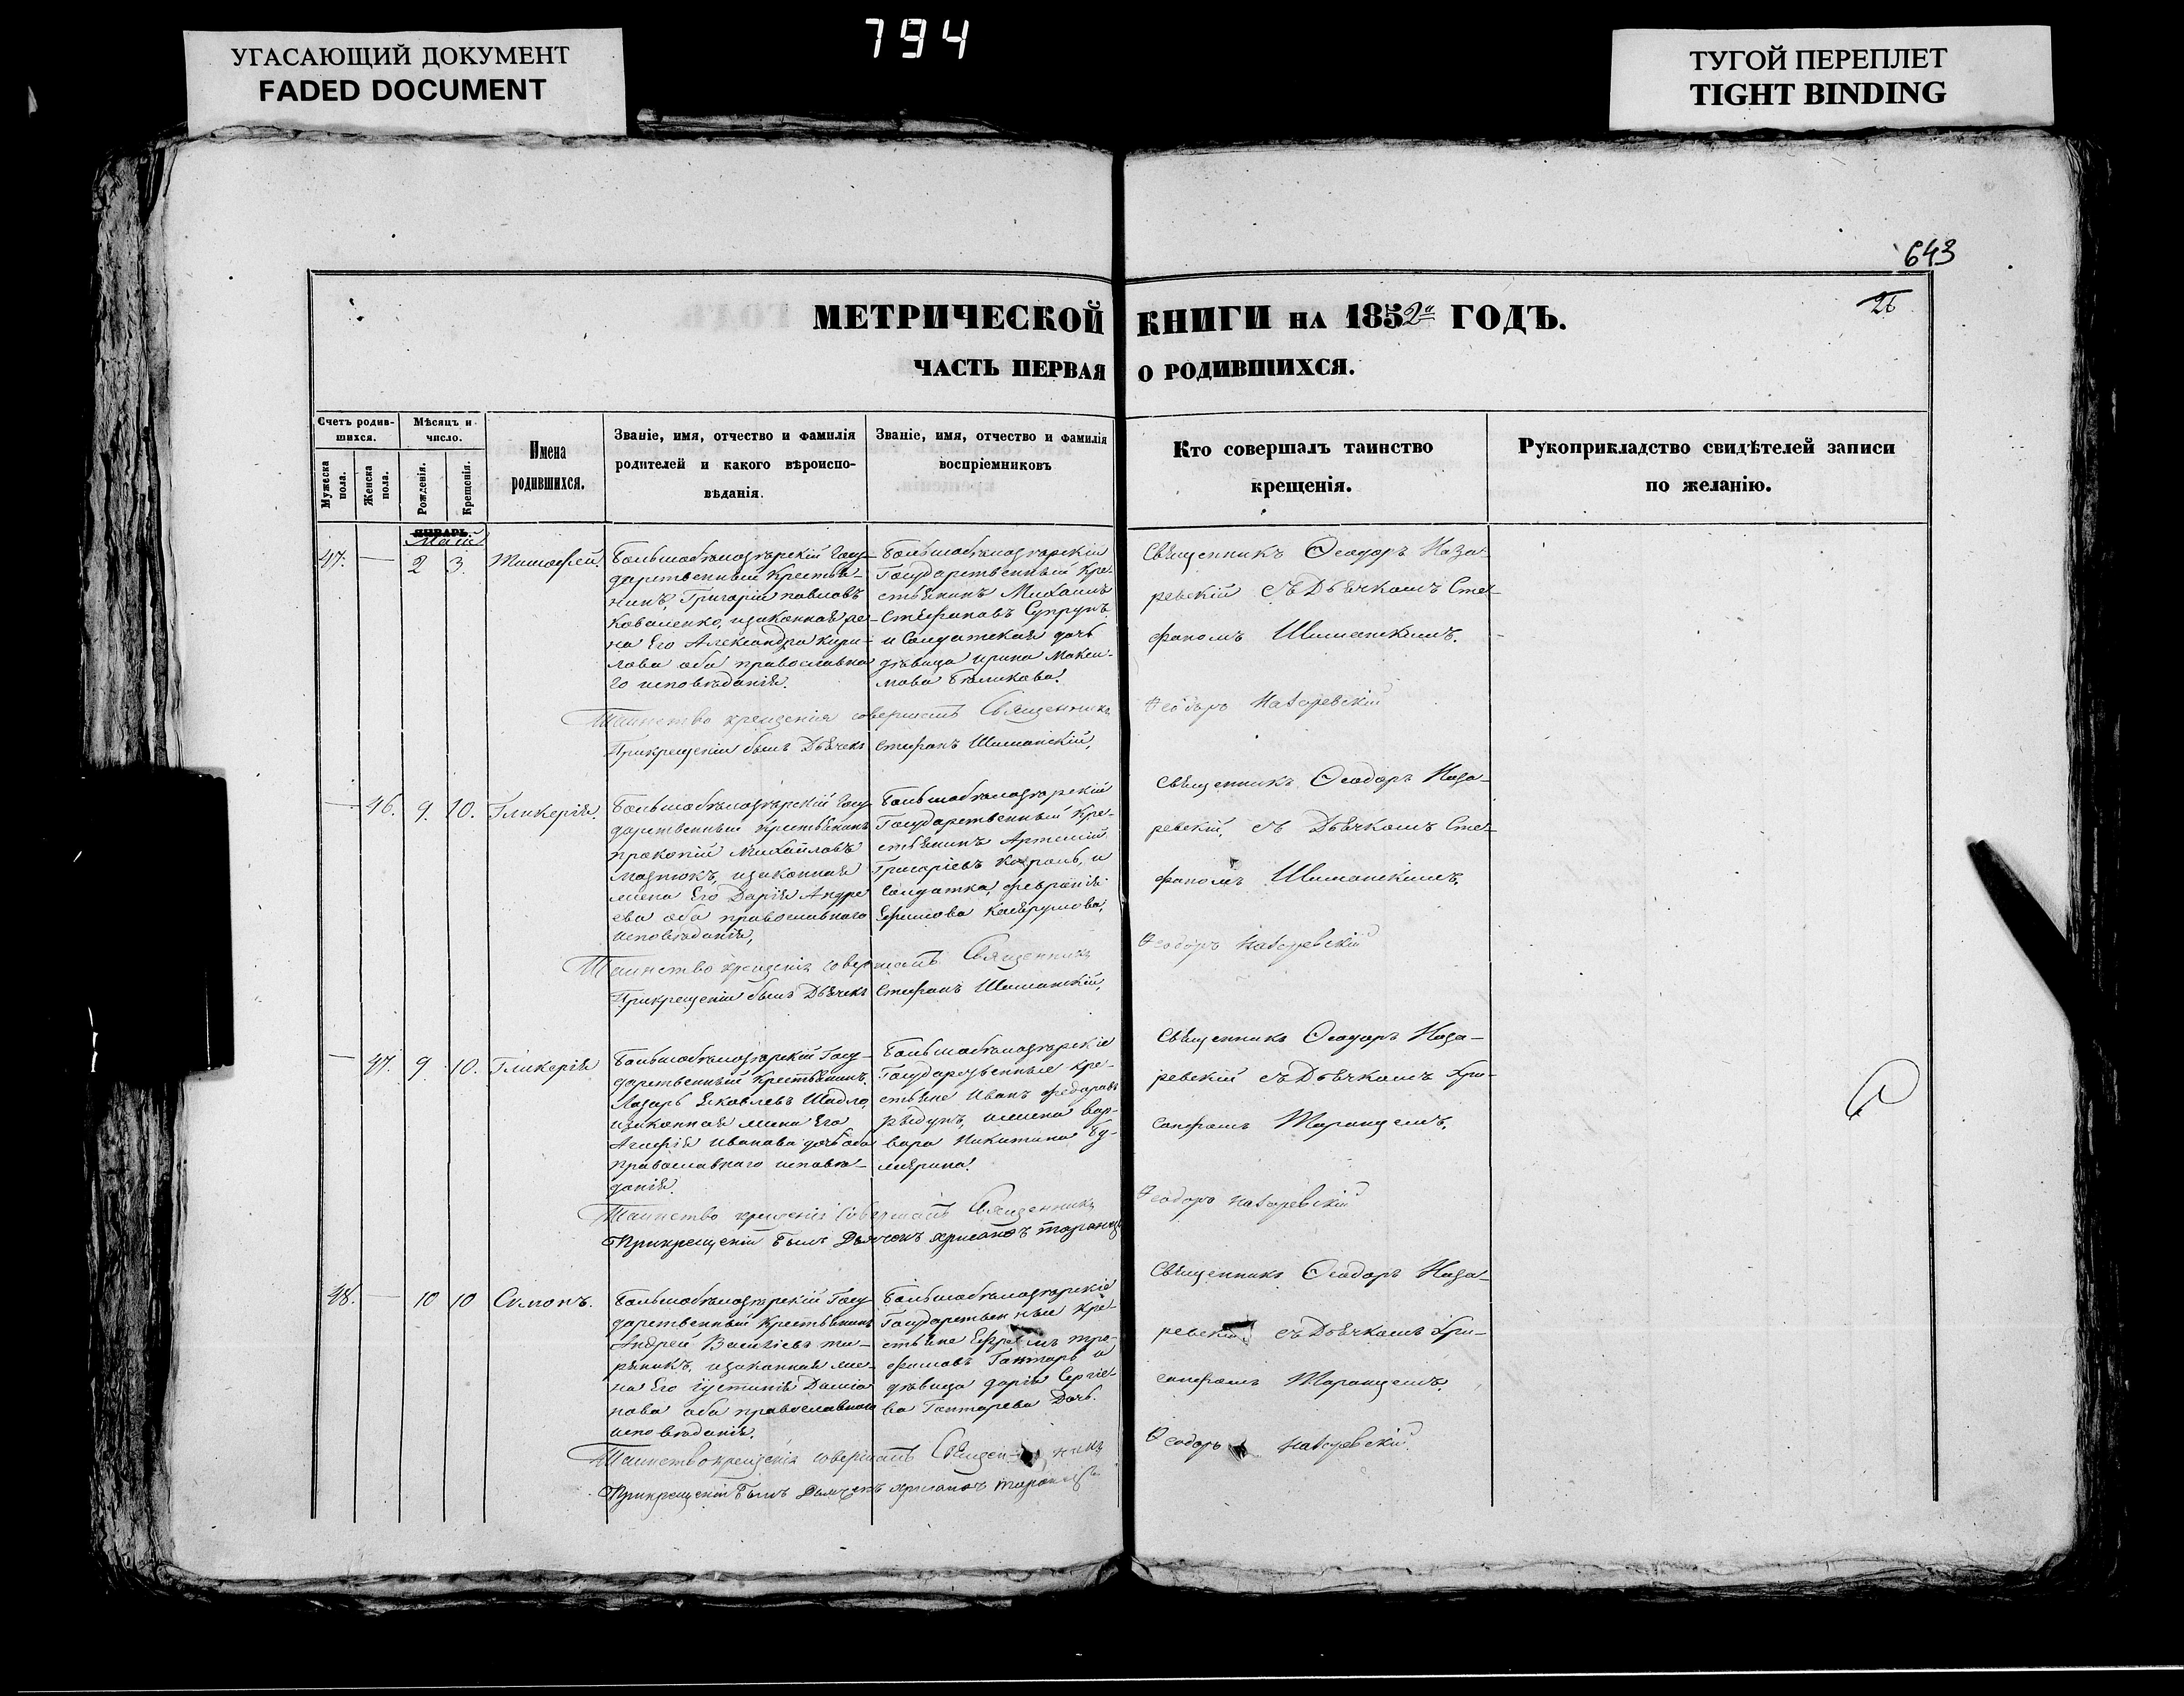 УГАСАЮЩИЙ ДОКУМЕНТ
FADED DOCUMENT
794
ТУГОЙ ПЕРЕПЛЕТ
TIGHT BINDING
643
26
МЕТРИЧЕСКОЙ КНИГИ НА 1852го ГОДЪ.
ЧАСТЬ ПЕРВАЯ О РОДИВШИХСЯ.
Счетъ родив-
шихся.
Мужеска
пола.
Женска
пола.
Мѣсяцъ и
число.
Рожденія.
Крещенія.
Имена
родившихся.
Званіе, имя, отчество и фамилія
родителей и какого вѣроиспо-
вѣданія.
Званіе, имя, отчество и фамилія
воспріемниковъ
Кто совершалъ таинство
крещенія.
Рукоприкладство свидѣтелей записи
по желанію.
ЯНВАРЬ.
Маій
47. — 2 3. Тимофей.
Большобѣлозѣрскій Госу-
дарственный Крестья-
нинъ, Григорій павловъ
Коваленко, изаконная же-
на Его Александра кири-
лова оба православна
го исповѣданія.
Большобѣлозѣрскій
Государственный Кре-
стьянинъ Михаилъ
Стефановъ Супрунъ
и Солдатская дочь
дѣвица ирина Макси-
мова Бѣликова.
Священникъ Ѳеодоръ Наза-
ревскій съ Дьячкомъ Сте-
фаномъ Шиманскимъ.
Таинство крещенія совершалъ Священникъ Ѳеодоръ Назаревскій
Прикрещеніи былъ Дьячекъ Стефанъ Шиманскій,
— 46. 9. 10. Гликерія.
Большобѣлозѣрскій Госу-
дарственный крестьянинъ
прокопій Михайловъ
изаконная
жена Его Дарія Андре
ева оба православнаго
исповѣданія,
Большобѣлозѣрскій
Государственный Кре-
стьянинъ Артемій
Григоріевъ Король, и
Солдатка, феѵронія
Ефимова
Священникъ Ѳеодоръ Наза-
ревскій, съ Дьячкомъ Сте-
фаномъ Шиманскимъ,
Таинство крещенія совершалъ Священникъ Ѳеодоръ Назаревскій
Прикрещеніи былъ Дьячекъ Стефанъ Шиманскій,
— 47. 9. 10. Гликерія
Большобѣлозѣрскій Госу-
дарственный Крестьянинъ,
Лазарь Яковлевъ Шадло,
изаконная жена Его
Агафія Иванова дочь оба
православнаго исповѣ-
данія.
Большобѣлозѣрскіе
Государственные кре-
стьяне Иванъ Федоровъ
Рѣдунъ, ижена вар-
вара Никитина
Священникъ Ѳеодоръ Наза-
ревскій съ Дьячкомъ Хри-
санфомъ Таранцемъ.
Таинство крещенія совершалъ Священникъ Ѳеодоръ Назаревскій
Прикрещеніи былъ Дьячекъ хрисанфъ таранецъ
48. — 10 10 Симонъ.
Большобѣлозѣрскій Госу-
дарственный Крестьянинъ
Андрей Василіевъ
изаконная же-
на Его іустинія Даміа
нова оба православнаго
исповѣданія.
Большобѣлозѣрскіе
Государственные Кре-
стьяне Ефремъ тро-
фимовъ Гонтарь и
дѣвица дарія Сергіе-
ва Гонтарева Дочь.
Священникъ Ѳеодоръ Наза-
ревскій съ Дьячкомъ Хри-
санфомъ Таранцемъ.
Таинство крещенія совершалъ Священникъ Ѳеодоръ Назаревскій
Прикрещеніи былъ Дьячекъ хрисанфъ таранецъ